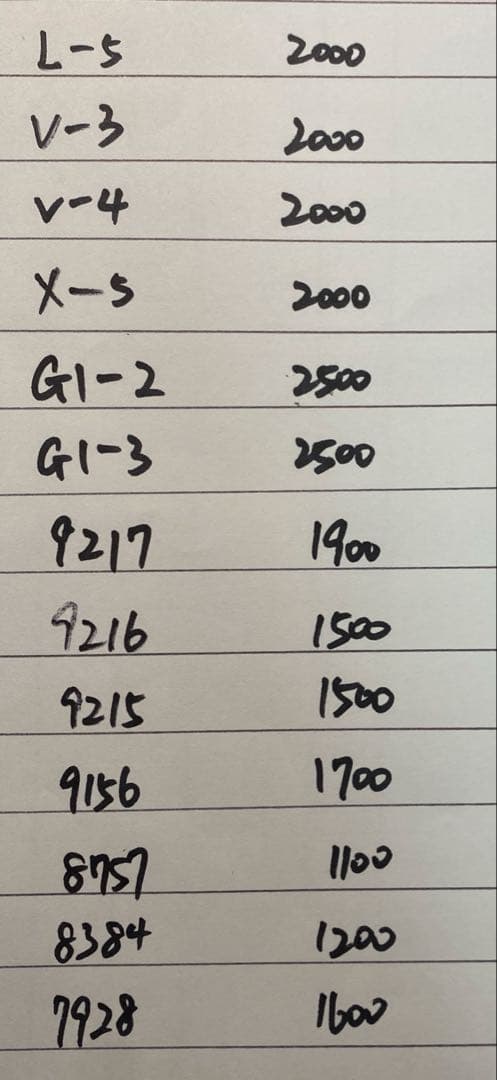 L-5 2000
V-3 2000
V-4 2000
X-5 2000
G1-2 2500
G1-3 2500
9217 1900
9216 1500
9215 1500
9156 1700
8757 1100
8384 1200
7928 1600